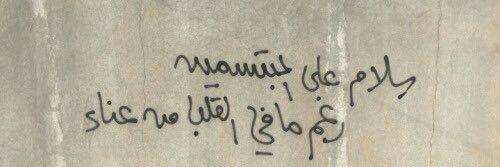 سلام على المبتسمين
رغم ما في القلب من عناء